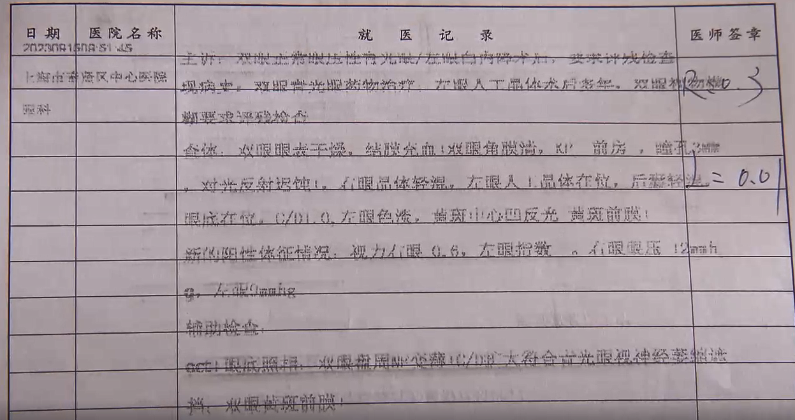 日期 医院名称 就医记录 医师签章
20230915 09:51:45
主诉：双眼正常眼压性青光眼/左眼白内障术后，要求评残检查
上海市 区中心医院 现病史：双眼青光眼药物治疗，左眼人工晶体术后多年，双眼视物模 R 0.3
眼科 糊要求评残检查
查体：双眼眼表干燥，结膜充血 双眼角膜清，KP 前房 ，瞳孔3mm
，对光反射迟钝 ，右眼晶体轻混，左眼人工晶体在位，后囊轻混 = 0.01
眼底在位，C/D1.0,左眼色淡，黄斑中心凹反光 黄斑前膜
新的阳性体征情况：视力右眼 0.6，左眼指数 。右眼眼压 12mmh
g，左眼9mmhg
辅助检查：
oct 眼底照相：双眼盘周 变薄 C/D 大符合青光眼视神经萎缩诊
双眼黄斑前膜